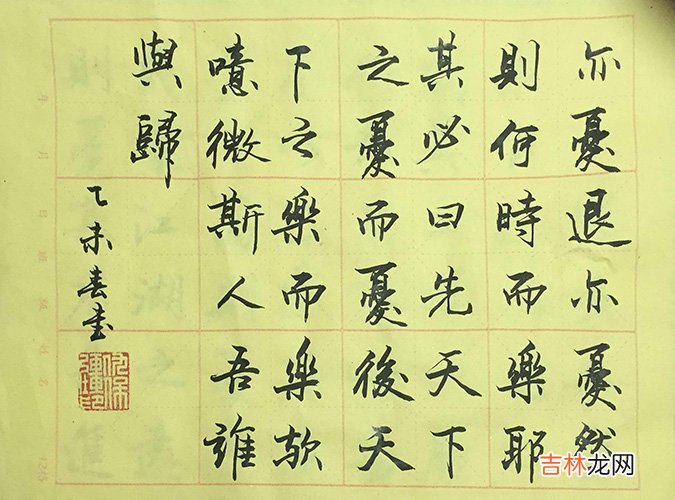 亦憂退亦憂然
則何時而樂耶
其必曰先天下
之憂而憂後天
下之樂而樂欤
噫微斯人吾誰
與歸
乙未春書
吉林龙网